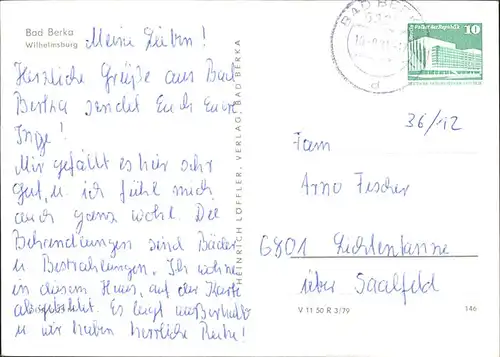 Bad Berka
Wilhelmsburg
Meine Lieben!
Herzliche Grüße aus Bad
Berka sendet Euch Eure
Inge!
Mir gefällt es hier sehr
gut, u. ich fühl mich
auch ganz wohl. Die
Behandlungen sind Bäder
u. Bestrahlungen. Ich wohne
in diesem Haus, auf der Karte
abgebildet. Es liegt außerhalb
u. wir haben herrliche Ruhe!
HEINRICH LÖFFLER, VERLAG, BAD BERKA
BAD BERKA
d
10
36/12
Fam
Arno Fischer
6801 Lichtentanne
über Saalfeld
V 11 50 R 3/79
146